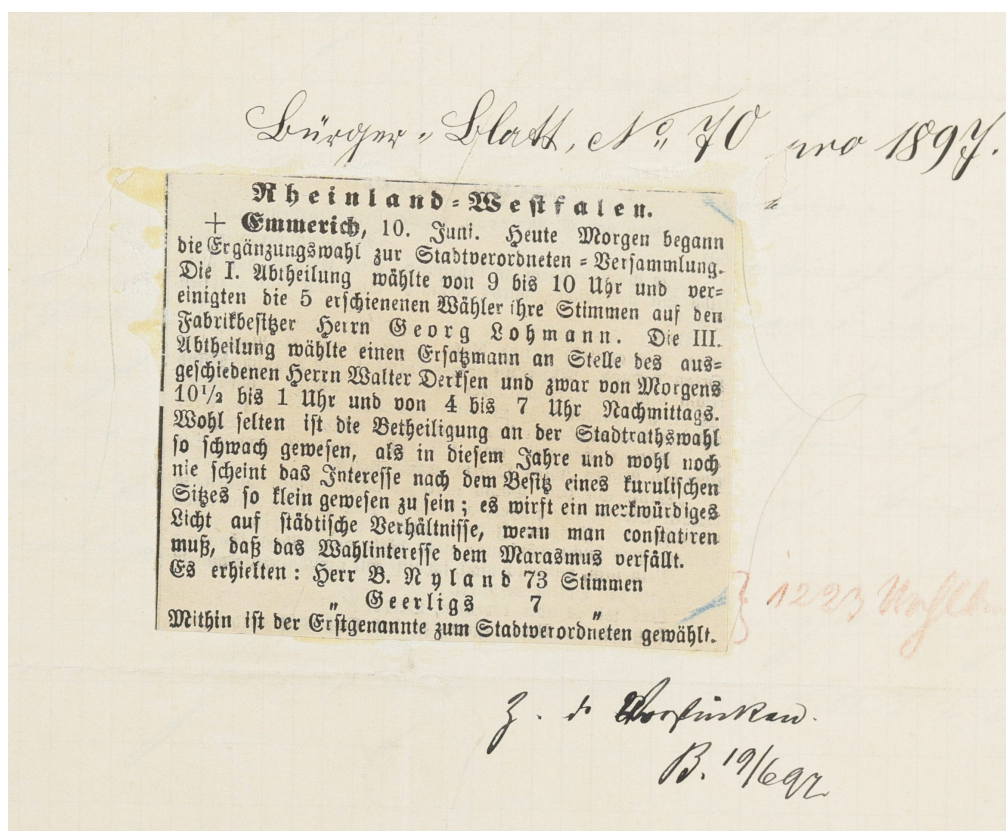 Bürger-Blatt, No. 70 pro 1897.
Rheinland-Westfalen.
+ Emmerich, 10. Juni. Heute Morgen begann
die Ergänzungswahl zur Stadtverordneten-Versammlung.
Die I. Abtheilung wählte von 9 bis 10 Uhr und ver-
einigten die 5 erschienenen Wähler ihre Stimmen auf den
Fabrikbesitzer Herrn Georg Lohmann. Die III.
Abtheilung wählte einen Ersatzmann an Stelle des aus-
geschiedenen Herrn Walter Derksen und zwar von Morgens
10 1/2 bis 1 Uhr und von 4 bis 7 Uhr Nachmittags.
Wohl selten ist die Betheiligung an der Stadtrathswahl
so schwach gewesen, als in diesem Jahre und wohl noch
nie scheint das Interesse nach dem Besitz eines kurulischen
Sitzes so klein gewesen zu sein; es wirft ein merkwürdiges
Licht auf städtische Verhältnisse, wenn man constatiren
muß, daß das Wahlinteresse dem Marasmus verfällt.
Es erhielten: Herr B. Nyland 73 Stimmen
" Geerligs 7 "
Mithin ist der Erstgenannte zum Stadtverordneten gewählt.
1223
Z. d.
B. 19/6 97.